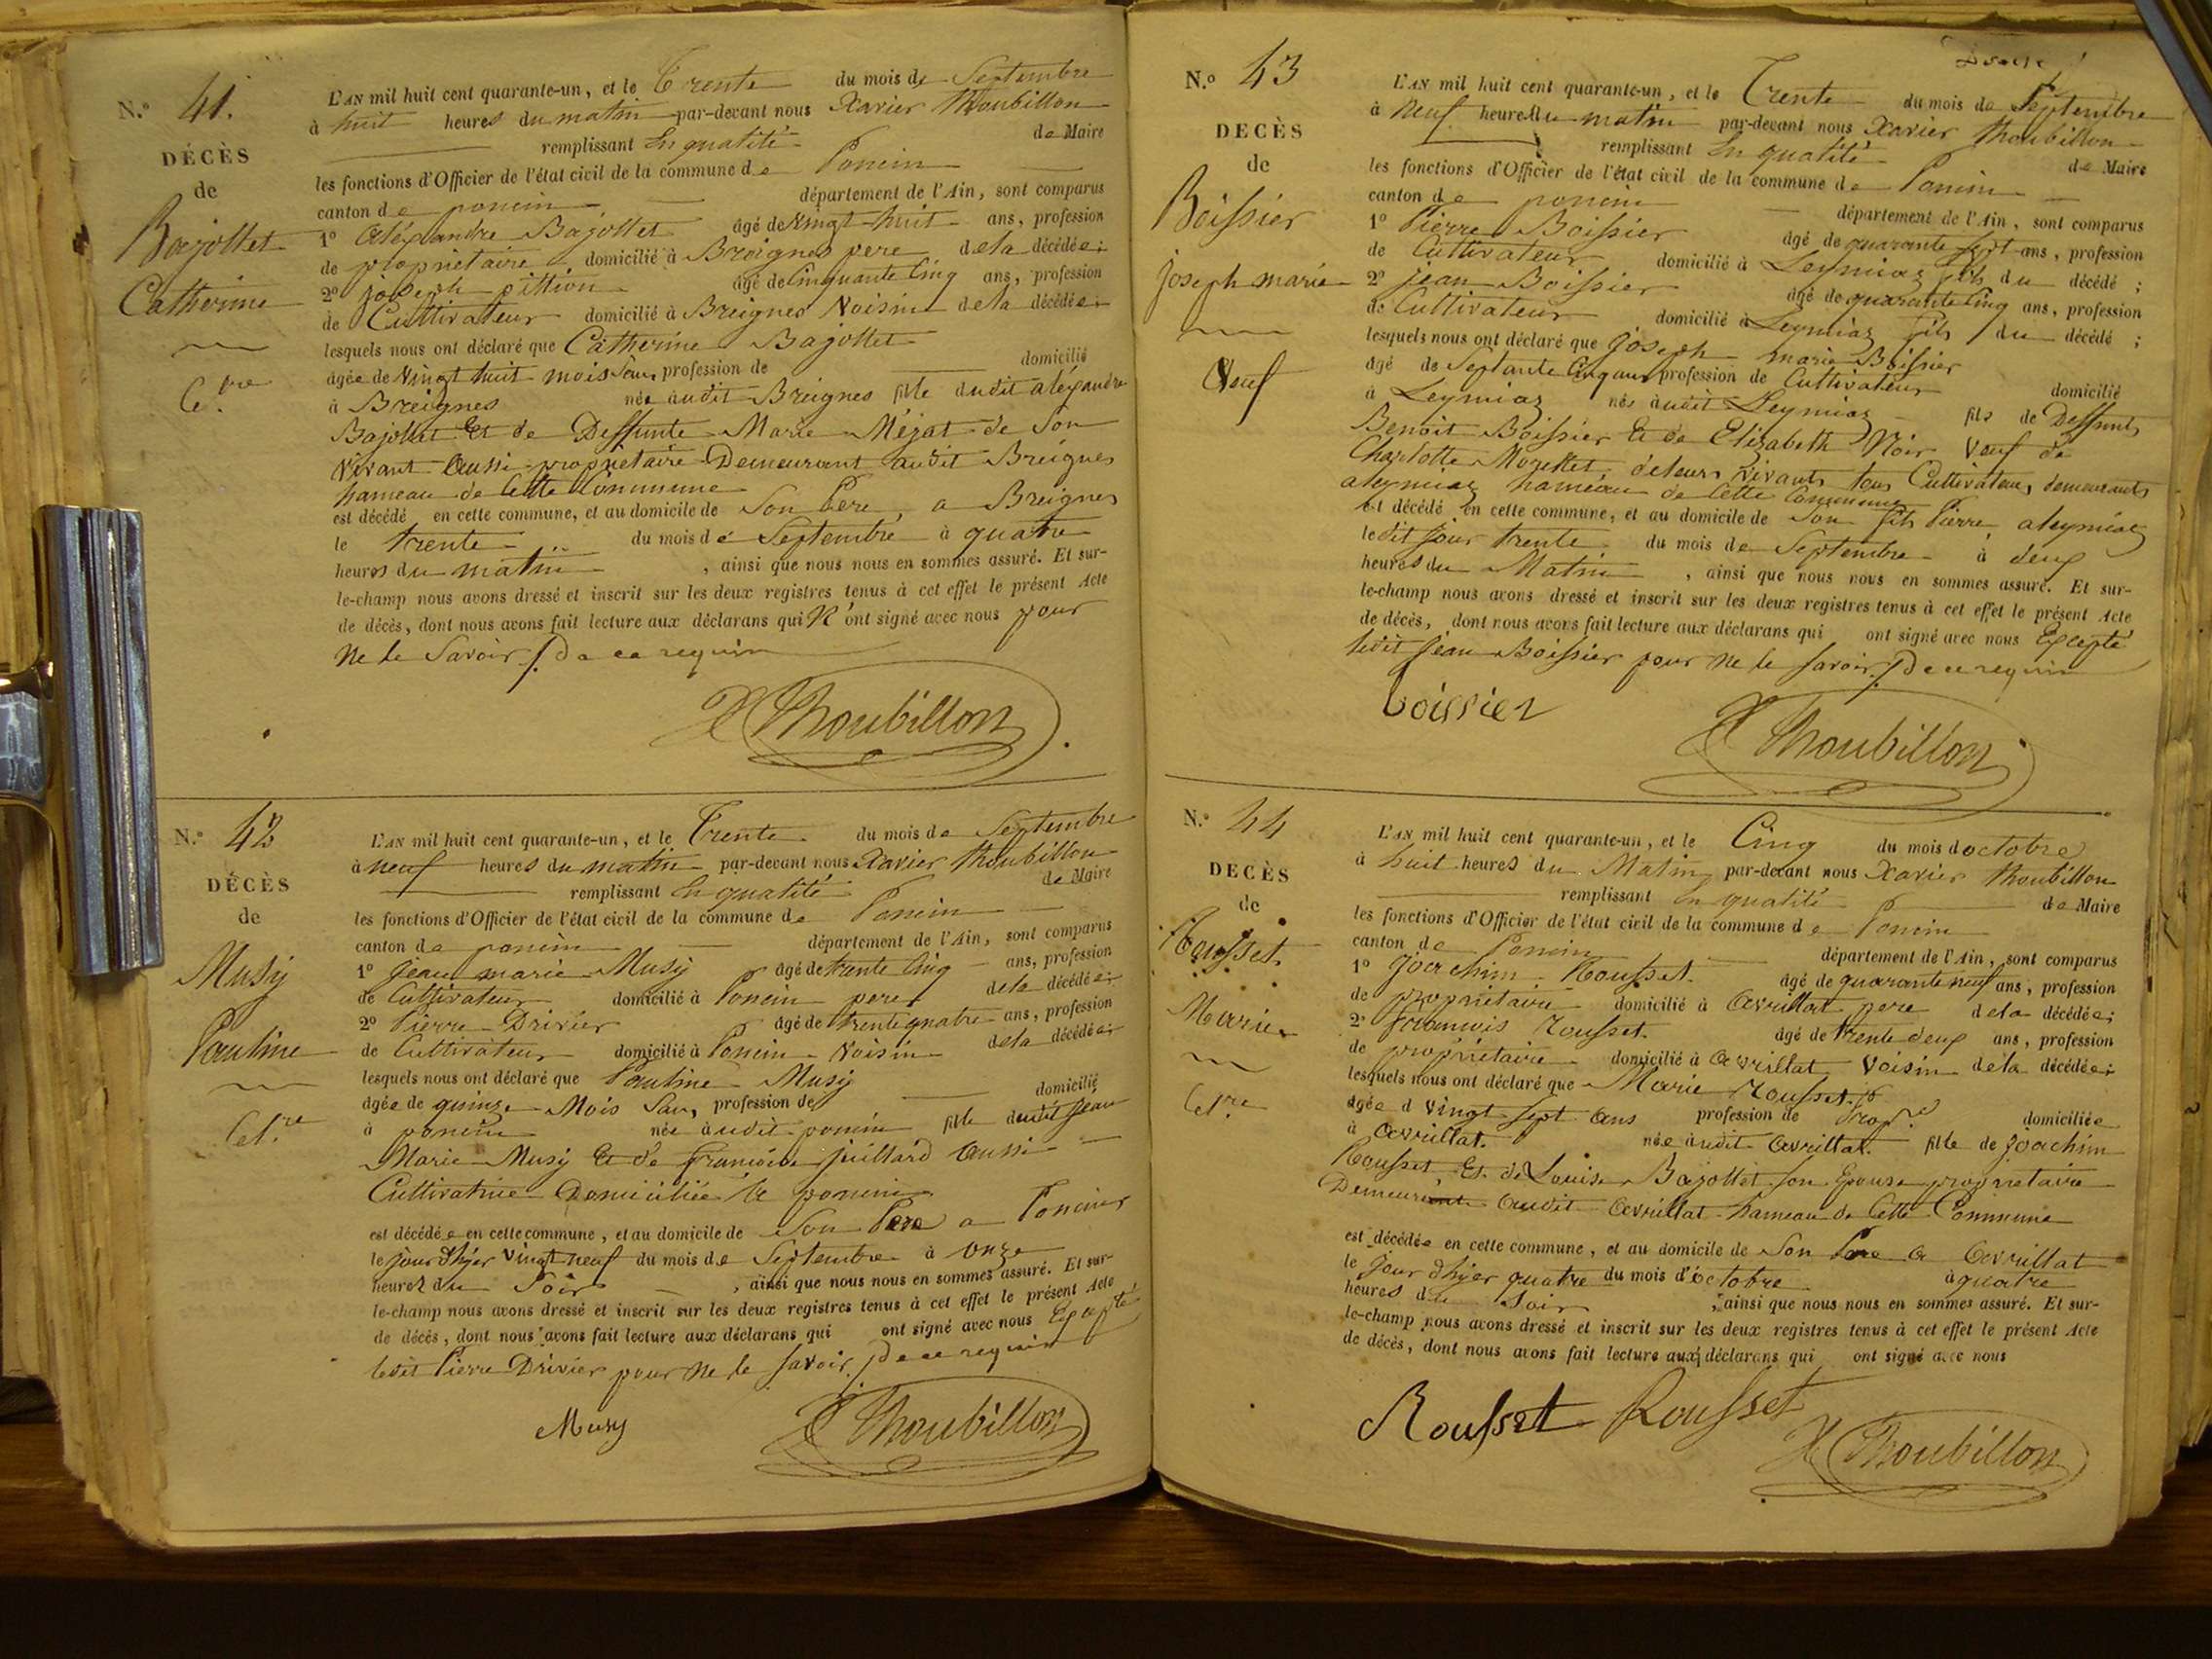 N.º 41.
DÉCÈS
de
Bajollet
Catherine
Cé.bre
L'AN mil huit cent quarante-un, et le Trente du mois de Septembre
à huit heures du matin par-devant nous Xavier Thoubillon
remplissant En qualité de Maire
les fonctions d'Officier de l'état civil de la commune de Poncin
canton de poncin département de l'Ain, sont comparus
1º Aléxandre Bajollet âgé de Vingt huit ans, profession
de propriétaire domicilié à Breignes pere de la décédée;
2º joseph pittion âgé de Cinquante Cinq ans, profession
de Cultivateur domicilié à Breignes Voisin de la décédée;
lesquels nous ont déclaré que Catherine Bajollet
âgée de Vingt huit mois Sans profession de domicilié
à Breignes née audit Breignes fille dudit aléxandre
Bajollet Et de Deffunte Marie Méjat de Son
vivant aussi propriétaire Demeurant audit Breignes
hameau de Cette Commune
est décédé en cette commune, et au domicile de Son Pere, a Breignes
le trente du mois de Septembre à quatre
heures du matin, ainsi que nous nous en sommes assuré. Et sur-
le-champ nous avons dressé et inscrit sur les deux registres tenus à cet effet le présent Acte
de décès, dont nous avons fait lecture aux déclarans qui N'ont signé avec nous pour
Ne le Savoir /. De ce requis
X Thoubillon
N.º 42
DÉCÈS
de
Musy
Pauline
Cel.re
L'AN mil huit cent quarante-un, et le Trente du mois de Septembre
à neuf heures du matin par-devant nous Xavier Thoubillon
remplissant En qualité de Maire
les fonctions d'Officier de l'état civil de la commune de Poncin
canton de poncin département de l'Ain, sont comparus
1º jean marie Musy âgé de trente Cinq ans, profession
de Cultivateur domicilié à Poncin pere de la décédée;
2º Pierre Drivier âgé de trente quatre ans, profession
de Cultivateur domicilié à Poncin Voisin de la décédée;
lesquels nous ont déclaré que Pauline Musy
âgée de quinze Mois Sans profession de domicilié
à poncin née audit poncin fille dudit Jean
Marie Musy Et de françoise juillard aussi
Cultivatrice Domiciliée à poncin
est décédée en cette commune, et au domicile de Son Pere a Poncin
le jour d'hyer Vingt neuf du mois de Septembre à onze
heures du Soir, ainsi que nous nous en sommes assuré. Et sur-
le-champ nous avons dressé et inscrit sur les deux registres tenus à cet effet le présent Acte
de décès, dont nous avons fait lecture aux déclarans qui ont signé avec nous Excepté
ledit Pierre Drivier pour ne le savoir /. De ce requis
Musy X Thoubillon
N.º 43
DECÈS
de
Boissier
joseph marie
Veuf
L'AN mil huit cent quarante-un, et le Trente du mois de Septembre
à neuf heures du matin par-devant nous Xavier Thoubillon
remplissant En qualité de Maire
les fonctions d'Officier de l'état civil de la commune de Poncin
canton de poncin département de l'Ain, sont comparus
1º Pierre Boissier âgé de quarante sept ans, profession
de Cultivateur domicilié à Leymiaz fils du décédé;
2º jean Boissier âgé de quarante Cinq ans, profession
de Cultivateur domicilié à Leymiaz fils du décédé;
lesquels nous ont déclaré que joseph marie Boissier
âgé de Septante Cinq ans profession de Cultivateur domicilié
à Leymiaz né audit Leymiaz fils de Deffunts
Benoit Boissier Et de Elizabeth Noir Veuf de
Charlotte Mogettet, de leurs Vivants tous Cultivateurs demeurants
aleymiaz hameau de Cette Commune
est décédé en cette commune, et au domicile de Son fils Pierre, aleymiaz
ledit jour trente du mois de Septembre à deux
heures du Matin, ainsi que nous nous en sommes assuré. Et sur-
le-champ nous avons dressé et inscrit sur les deux registres tenus à cet effet le présent Acte
de décès, dont nous avons fait lecture aux déclarans qui ont signé avec nous Excepté
ledit Jean Boissier pour ne le savoir /. De ce requis
boissier X Thoubillon
N.º 44
DECÈS
de
Rousset
Marie
Cel.re
L'AN mil huit cent quarante-un, et le Cinq du mois d'octobre
à huit heures du Matin par-devant nous Xavier Thoubillon
remplissant En qualité de Maire
les fonctions d'Officier de l'état civil de la commune de Poncin
canton de Poncin département de l'Ain, sont comparus
1º Joachim Rousset âgé de quarante neuf ans, profession
de propriétaire domicilié à Avrillat pere de la décédée;
2º françois Rousset âgé de trente deux ans, profession
de propriétaire domicilié à Avrillat Voisin de la décédée;
lesquels nous ont déclaré que Marie Rousset
âgée d Vingt Sept ans profession de Prop.re domiciliée
à Avrillat née audit Avrillat fille de Joachim
Rousset Et de Louise Bajollet son Epouse propriétaire
Demeurant audit Avrillat hameau de Cette Commune
est décédée en cette commune, et au domicile de Son Pere a Avrillat
le jour d'hyer quatre du mois d'octobre à quatre
heures du Soir, ainsi que nous nous en sommes assuré. Et sur-
le-champ nous avons dressé et inscrit sur les deux registres tenus à cet effet le présent Acte
de décès, dont nous avons fait lecture aux déclarans qui ont signé avec nous
Rousset Rousset X Thoubillon